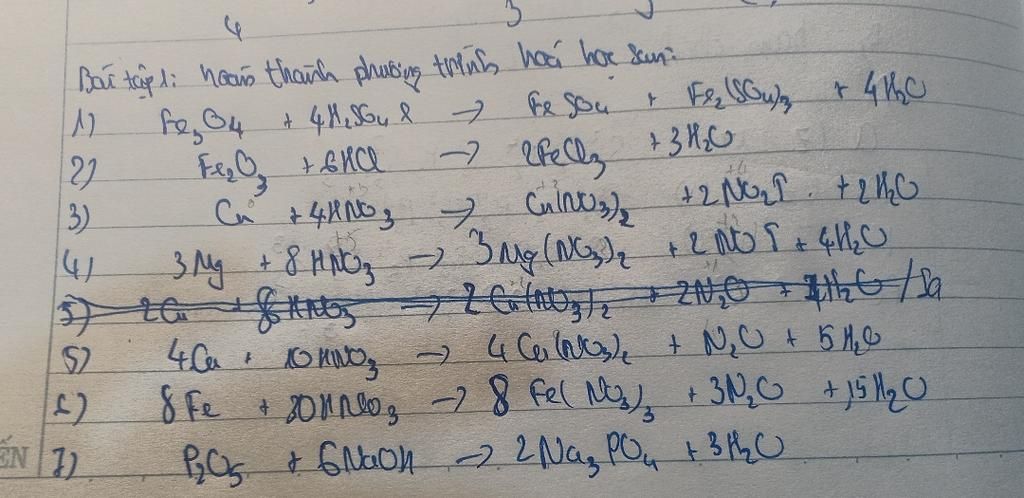 4 3
Bài tập 1: hoàn thành phương trình hoá học sau:
1) Fe3O4 + 4H2SO4 → FeSO4 + Fe2(SO4)3 + 4H2O
2) Fe2O3 + 6HCl → 2FeCl3 + 3H2O
3) Cu + 4HNO3 → Cu(NO3)2 + 2NO2↑ + 2H2O
4) 3Mg + 8HNO3 → 3Mg(NO3)2 + 2NO↑ + 4H2O
5) 2Cu + 8HNO3 → 2Cu(NO3)2 + 2N2O + H2O / Sa
5) 4Ca + 10HNO3 → 4Ca(NO3)2 + N2O + 5H2O
6) 8Fe + 30HNO3 → 8Fe(NO3)3 + 3N2O + 15H2O
7) P2O5 + 6NaOH → 2Na3PO4 + 3H2O
ẾN